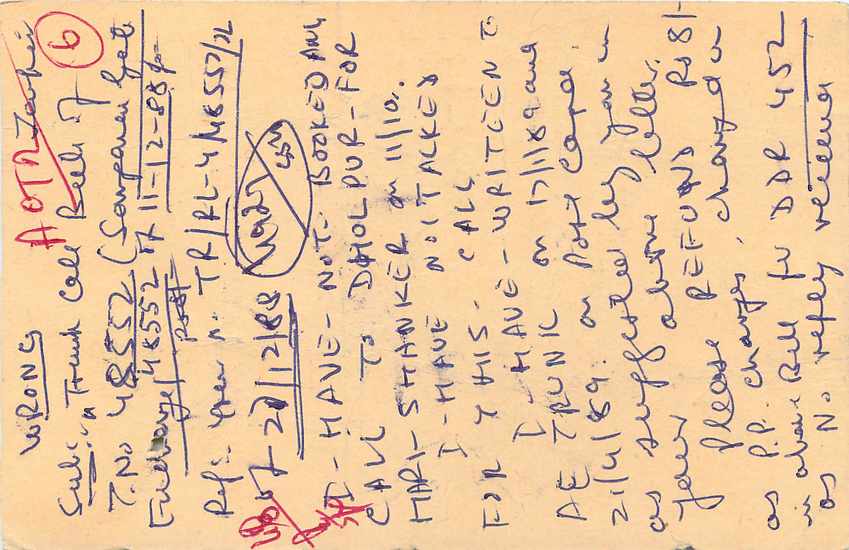 WRONG
Sub:- Trunk Call Bill of
T.No 48552 (Sanganer Gate
Exchange) 48552 of 11-12-88 for
Rs 81-
Ref:- Your n. TR/RL-4/48552/
of 27/12/88
I - HAVE - NOT - BOOKED ANY
CALL TO DHOLPUR - FOR
HARI - SHANKER on 11/10.
I - HAVE NOT TALKED
FOR THIS - CALL
I - HAVE - WRITEEN TO
AE TRUNK on 17/1/89 and
21/4/89. on Post Cards.
as suggested by you in
your above letter.
Please REFUND Rs 81-
as P.P. charges, charged in
in above Bill for DDR 452
as No reply received
AOTR
6